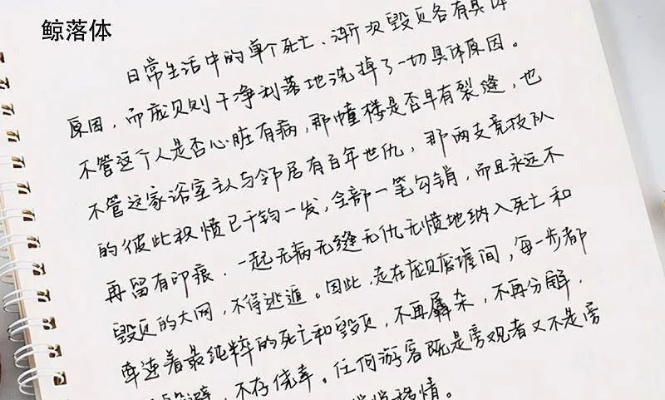 鲸落体
日常生活中的单个死亡、一次次毁灭各有具体
原因，而庞贝则干净利落地洗掉了一切具体原因。
不管这个人是否心脏有病，那幢楼是否早有裂缝，也
不管这家浴室主人与邻居有百年世仇，那两支竞技队
的彼此积愤已千钧一发，全部一笔勾销，而且永远不
再留有印痕，一起无病无缝无仇无愤地纳入死亡和
毁灭的大网，不得逃遁。因此，走在庞贝废墟间，每一步都
牵连着最纯粹的死亡和毁灭，不再羼杂，不再分解，
避，不存侥幸。任何游客既是旁观者又不是旁
移情。